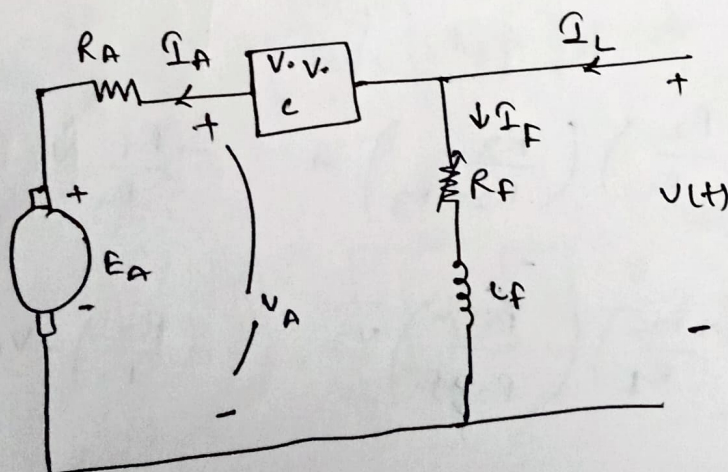 R_A
I_A
V. V.
C
I_L
+
+
↓ I_F
R_F
V(t)
+
E_A
-
V_A
L_F
-
-